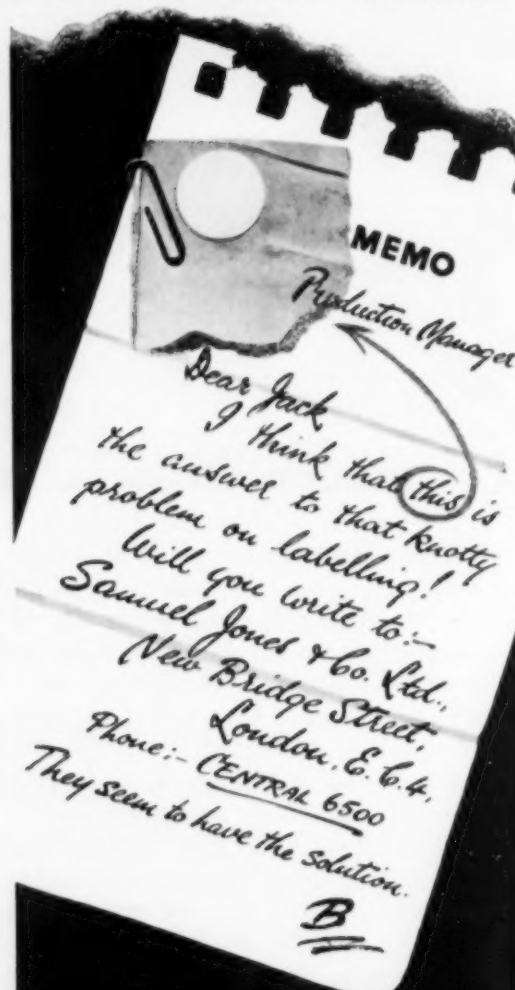 MEMO
Production Manager
Dear Jack
I think that this is
the answer to that knotty
problem on labelling!
Will you write to:—
Samuel Jones & Co. Ltd.,
New Bridge Street,
London, E.C.4.
Phone:— CENTRAL 6500
They seem to have the solution.
B